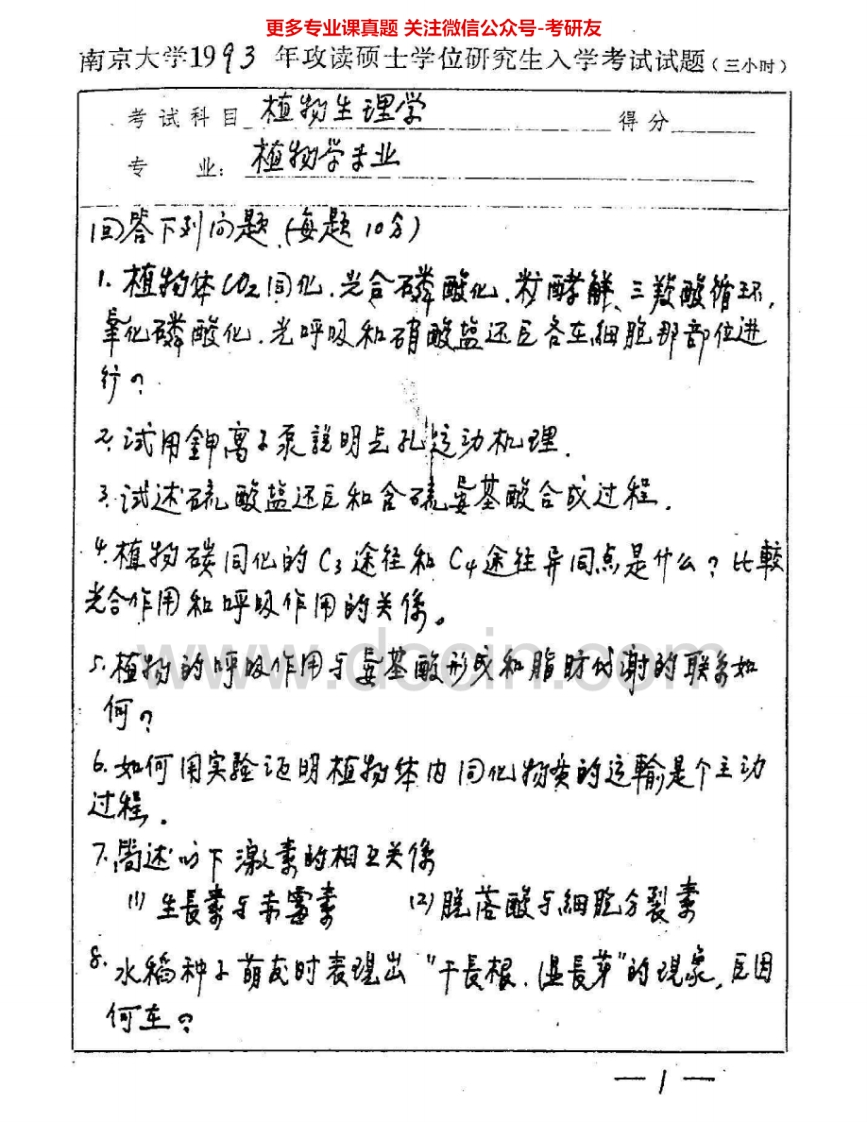 更多专业课真题 关注微信公众号-考研友
南京大学1993年攻读硕士学位研究生入学考试试题(三小时)
考试科目 植物生理学 得分
专 业: 植物学专业
回答下列问题(每题10分)
1. 植物体CO2同化、光合磷酸化、糖酵解、三羧酸循环,
氧化磷酸化、光呼吸和硝酸盐还原各在細胞那部位进
行?
2. 试用鉀离子泵說明气孔运动机理.
3. 试述硫酸盐还原和含硫氨基酸合成过程.
4. 植物碳同化的C3途径和C4途径异同点是什么?比較
光合作用和呼吸作用的关係。
www.docin.com
5. 植物的呼吸作用与氨基酸形成和脂肪代谢的联系如
何?
6. 如何用实验证明植物体内同化物质的运輸是个主动
过程.
7. 簡述以下激素的相互关係
(1) 生長素与赤霉素 (2) 脱落酸与細胞分裂素
8. 水稻种子萌发时表现出"干長根、湿長芽"的现象,原因
何在?
—1—